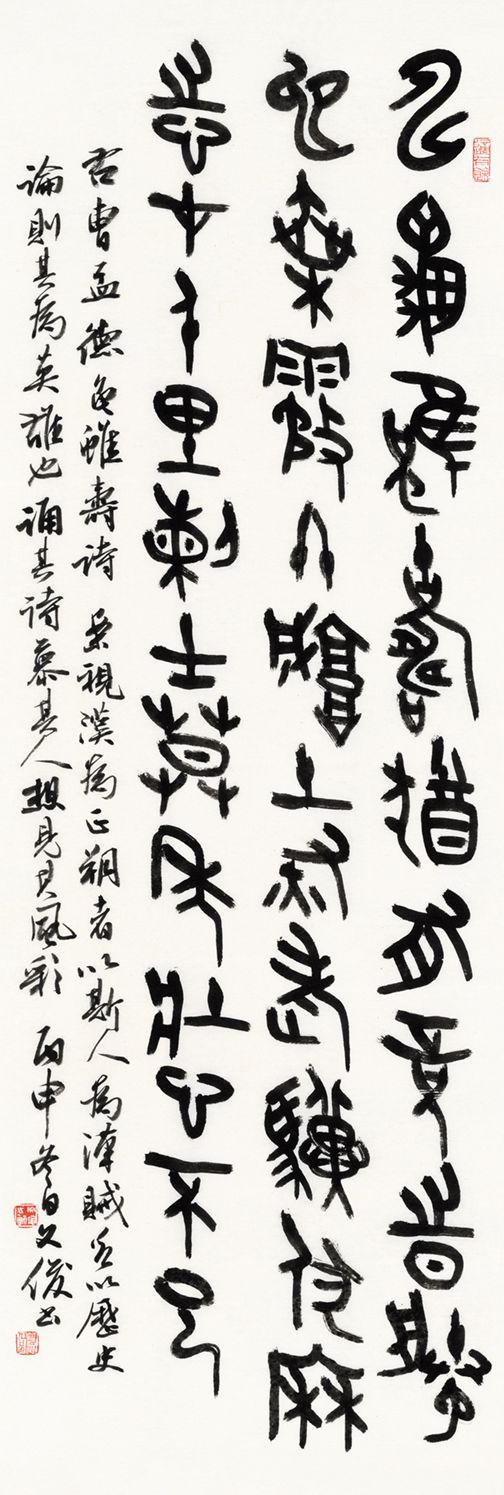 神龜雖壽猶有竟時騰
蛇乘霧終為土灰老驥伏櫪
志在千里烈士暮年壯心不已
右曹孟德龜雖壽詩 視漢為正朔者以斯人為漢賊若以歷史
論則其為英雄也誦其詩慕其人想見其風彩 丙申冬日文俊書